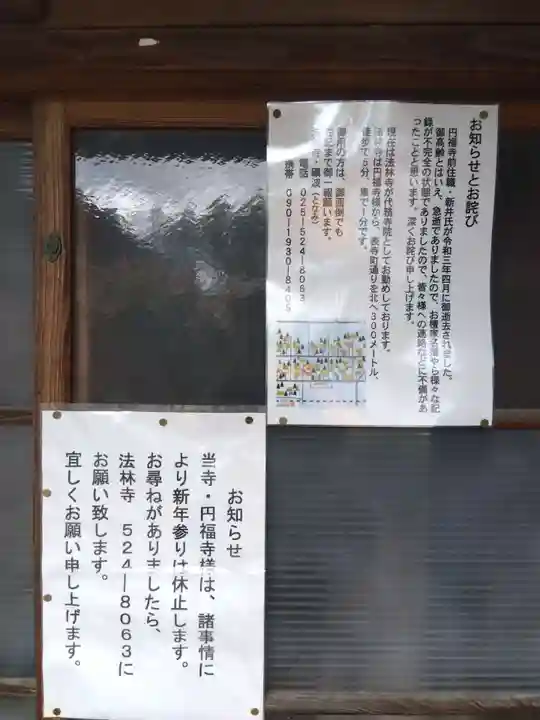 お知らせとお詫び
円福寺前住職・新井氏が令和三年四月に御逝去されました。
御高齢とはいえ、急逝でありましたので、お檀家名簿やら様々な記
録が不完全の状態でありましたので、皆々様への連絡などに不備があ
ったことと思います。深くお詫び申し上げます。
現在は法林寺が代務寺院としてお勤めしております。
法林寺は円福寺様から、表寺町通りを北へ300メートル、
徒歩で5分、車で1分です。
御用の方は、御面倒でも
左記まで御一報願います。
法林寺・磯波(となみ)
電話 025―524―8063
携帯 090―1930―8405
お知らせ
当寺・円福寺様は、諸事情に
より新年参りは休止します。
お尋ねがありましたら、
法林寺 524―8063に
お願い致します。
宜しくお願い申し上げます。